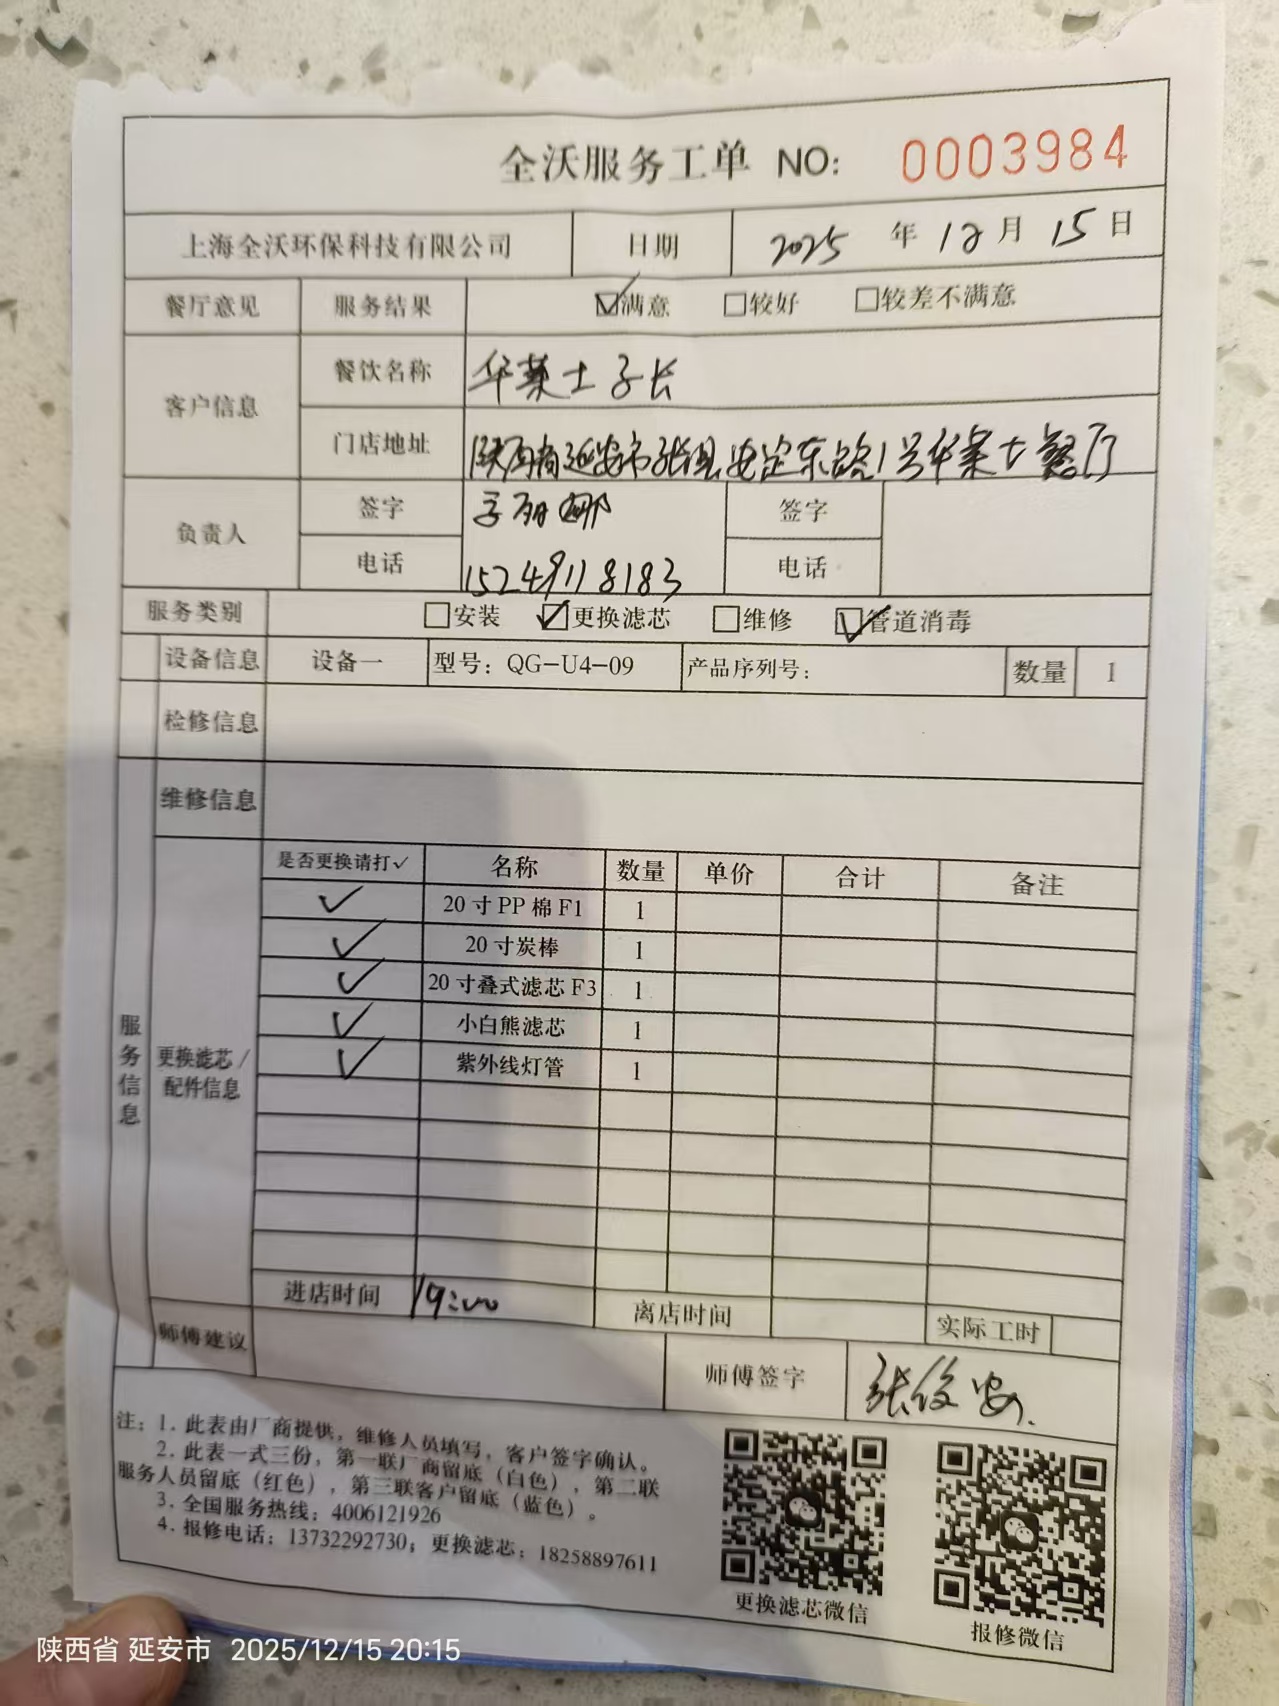 全沃服务工单 NO: 0003984
上海全沃环保科技有限公司 日期 2025 年 12 月 15 日
餐厅意见 服务结果 ☑满意 □较好 □较差不满意
客户信息 餐饮名称 华莱士子长
门店地址 陕西省延安市子长县安定东路1号华莱士餐厅
负责人 签字 丽娜 签字
电话 15249118183 电话
服务类别 □安装 ☑更换滤芯 □维修 ☑管道消毒
设备信息 设备一 型号：QG-U4-09 产品序列号： 数量 1
检修信息
维修信息
服务信息
更换滤芯/配件信息
是否更换请打✓ 名称 数量 单价 合计 备注
✓ 20寸PP棉F1 1
✓ 20寸炭棒 1
✓ 20寸叠式滤芯F3 1
✓ 小白熊滤芯 1
✓ 紫外线灯管 1
进店时间 19:00 离店时间 实际工时
师傅建议 师傅签字 张俊安
注：1. 此表由厂商提供，维修人员填写，客户签字确认。
2. 此表一式三份，第一联厂商留底（白色），第二联
服务人员留底（红色），第三联客户留底（蓝色）。
3. 全国服务热线：4006121926
4. 报修电话：13732292730；更换滤芯：18258897611
更换滤芯微信 报修微信
陕西省 延安市 2025/12/15 20:15